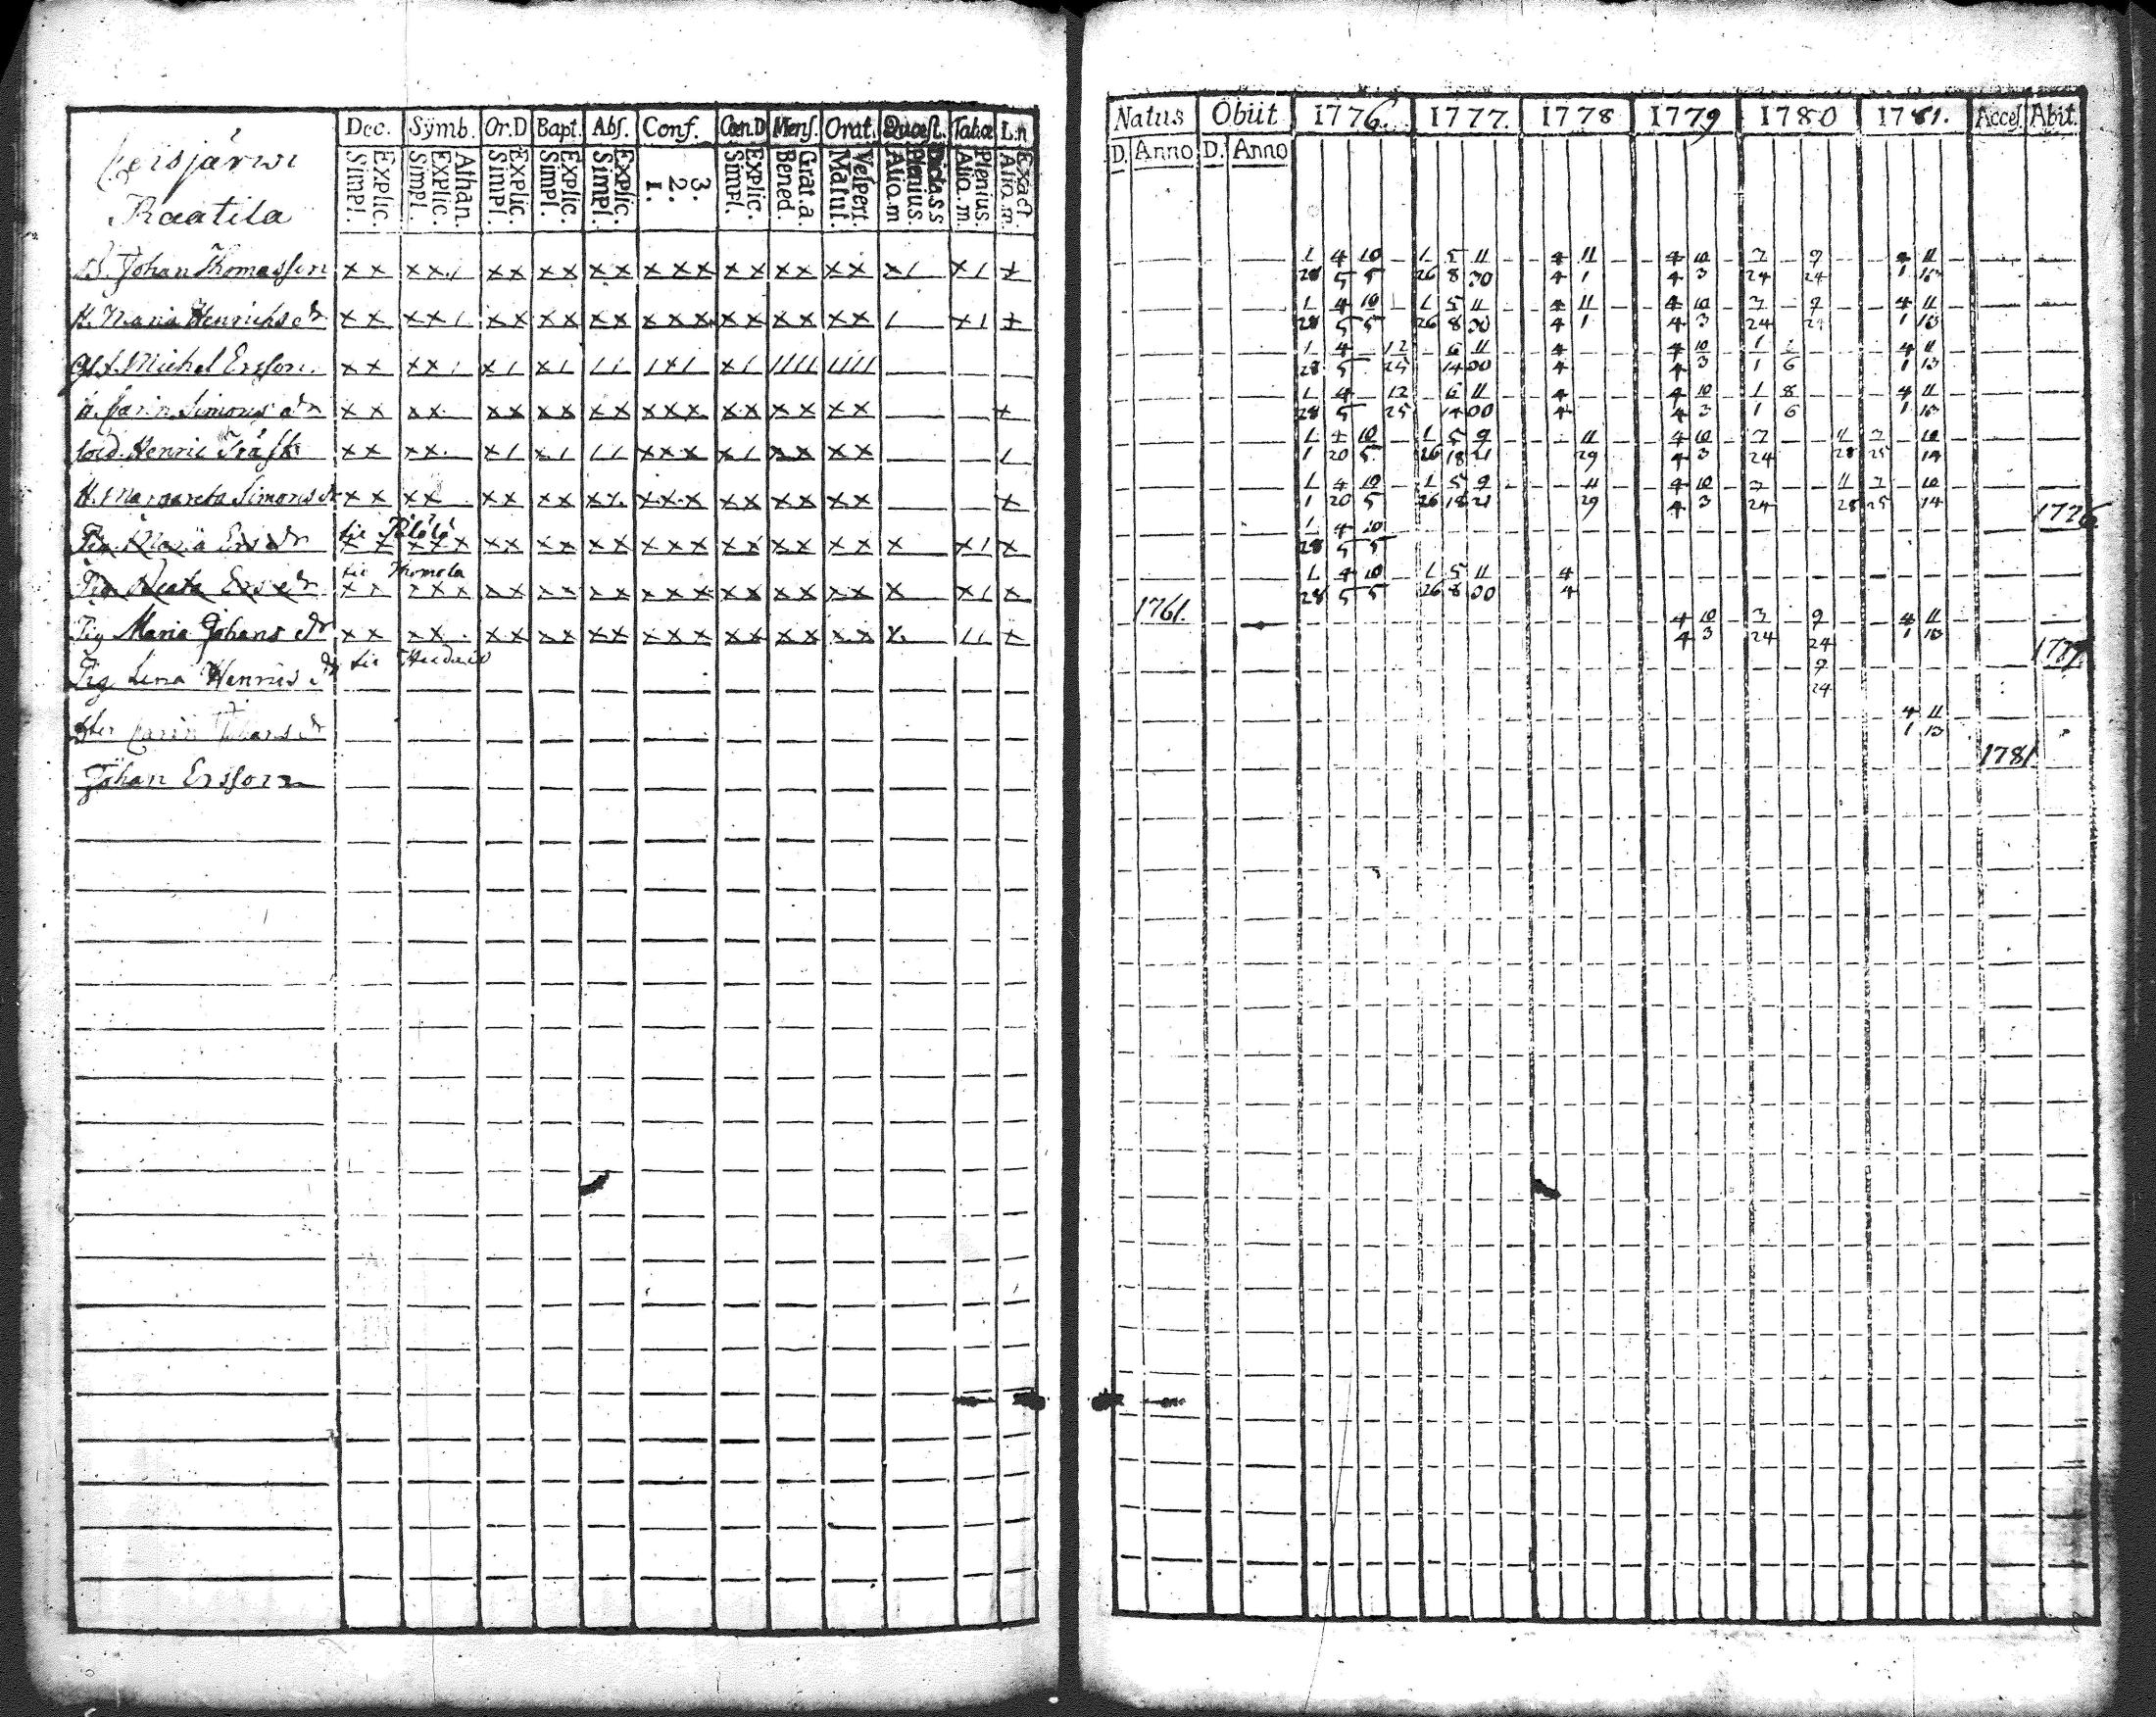 Dec. Sÿmb. Or.D Bapt. Abſ. Conf. Cœn.D Menſ. Orat. Quæſt. Tabæ L.n
Simpl. Explic. Simpl. Explic. Athan. Simpl. Explic. Simpl. Explic. Simpl. Explic. 1. 2. 3. Simpl. Explic. Bened. Grat.a Matut. Veſpert. Aliq.m Plenius. Dicta.s s Aliq.m. Plenius. Aliq.m. Exact.
Raatila
B. Johan Thomasson
H. Maria Henricks dr
Michel Ersson
Carin Simons dr
Sold. Henric Träsk
H. Margareta Simons dr
Pig. Maria Ers dr
Pig Beata Ers dr
Thomola
Pig Maria Johans dr
Pig Lena Henrics dr
Carin Johans dr
Johan Ersson
Natus Obiit 1776. 1777. 1778 1779 1780 1781. Acceſ. Abit.
D. Anno D. Anno
1 4 10 1 5 11 4 11 4 10 7 9 4 11
28 5 5 26 8 30 4 1 4 3 24 24 1 13
1 4 10 1 5 11 4 11 4 10 7 9 4 11
28 5 5 26 8 30 4 1 4 3 24 24 1 13
1 4 12 6 11 4 4 10 4 11
28 5 25 14 30 4 4 3 1 6 1 13
1 4 12 6 11 4 4 10 1 8 4 11
28 5 25 14 30 4 4 3 1 6 1 13
1 4 10 1 5 9 11 4 10 7 11 7 10
1 20 5 26 18 21 29 4 3 24 28 25 14
1 4 10 1 5 9 11 4 10 7 11 7 10
1 20 5 26 18 21 29 4 3 24 28 25 14
1776
1 4 10
28 5 5
1 4 10 1 5 11 4
28 5 5 26 8 30 4
1761.
4 10 7 9 4 11
4 3 24 24 1 13
9
24
4 11
1 13
1781